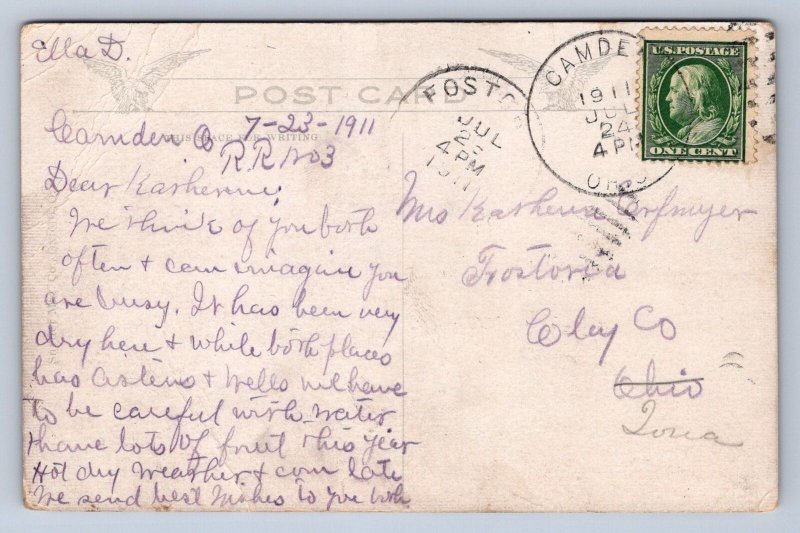 Ella D.
POST CARD
THIS SPACE FOR WRITING
Camden O 7-23-1911
R.R. No 3
Dear Katherine;
We think of you both
often + can imagine you
are busy. It has been very
dry here & while both places
has cisterns & wells will have
to be careful with water
have lots of fruit this year
Hot dry weather & corn late
We send best wishes to you both
FOSTOR
JUL
4 PM
1911
CAMDE
1911
JUL
24
4 PM
OHIO
U.S. POSTAGE
ONE CENT
Mrs Katherine
Fostoria
Clay Co
Ohio
Iowa